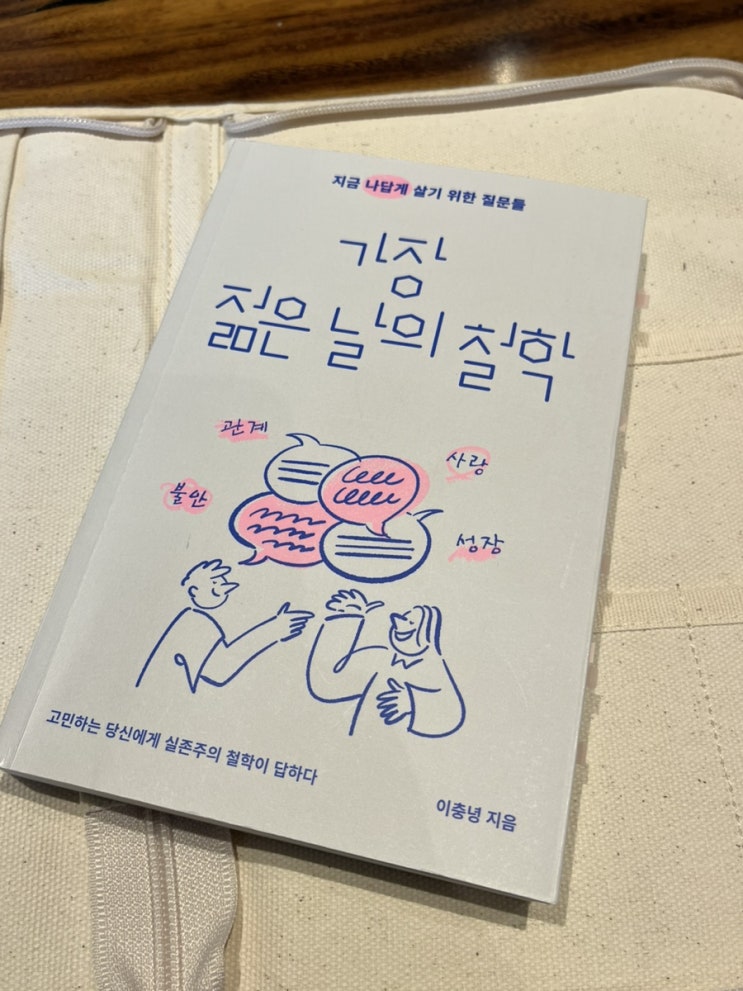 지금 나답게 살기 위한 질문들
가장
젊은 날의 철학
관계
사랑
불안
성장
고민하는 당신에게 실존주의 철학이 답하다
이충녕 지음